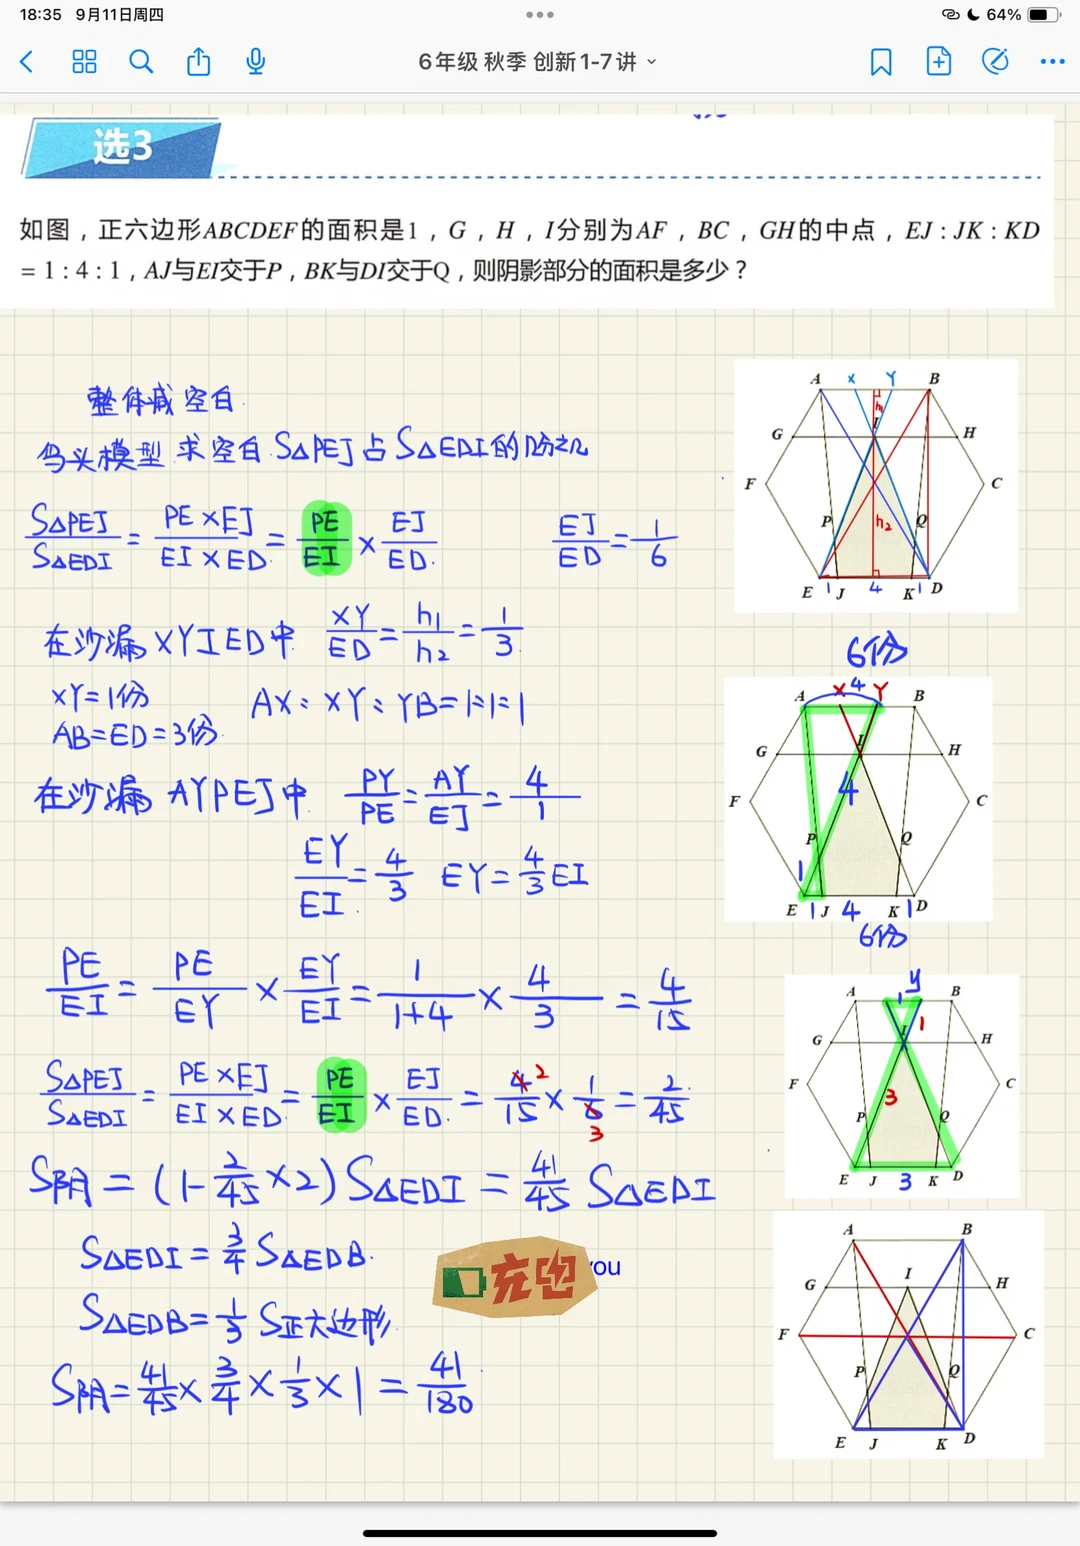 18:35 9月11日周四
64%
6年级 秋季 创新1-7讲
选3
如图，正六边形ABCDEF的面积是1，G，H，I分别为AF，BC，GH的中点，EJ：JK：KD
=1:4:1，AJ与EI交于P，BK与DI交于Q，则阴影部分的面积是多少？
整体减空白
鸟头模型 求空白 S△PEJ占S△EDI的几分之几
S△PEJ/S△EDI = PE×EJ/EI×ED = PE/EI × EJ/ED. EJ/ED = 1/6
在沙漏XYIED中 XY/ED = h₁/h₂ = 1/3
XY=1份 AX:XY:YB=1:1:1
AB=ED=3份
在沙漏AYPEJ中 PY/PE = AY/EJ = 4/1
EY/EI = 4/3 EY=4/3EI
PE/EI = PE/EY × EY/EI = 1/1+4 × 4/3 = 4/15
S△PEJ/S△EDI = PE×EJ/EI×ED = PE/EI × EJ/ED. = 4/15 × 1/6 = 2/45
2
3
S阴 = (1-2/45×2) S△EDI = 41/45 S△EDI
S△EDI = 3/4 S△EDB.
充电
you
S△EDB = 1/3 S正六边形.
S阴 = 41/45 × 3/4 × 1/3 × 1 = 41/180
A X Y B
h₁
G I H
F C
P h₂ Q
E 1 J 4 K 1 D
6份
A X 4 Y B
G I H
F 4 C
P Q
1
E 1 J 4 K 1 D
6份
y
A 1 B
G I 1 H
F C
3
P Q
E J 3 K D
A B
G I H
F C
P Q
E J K D